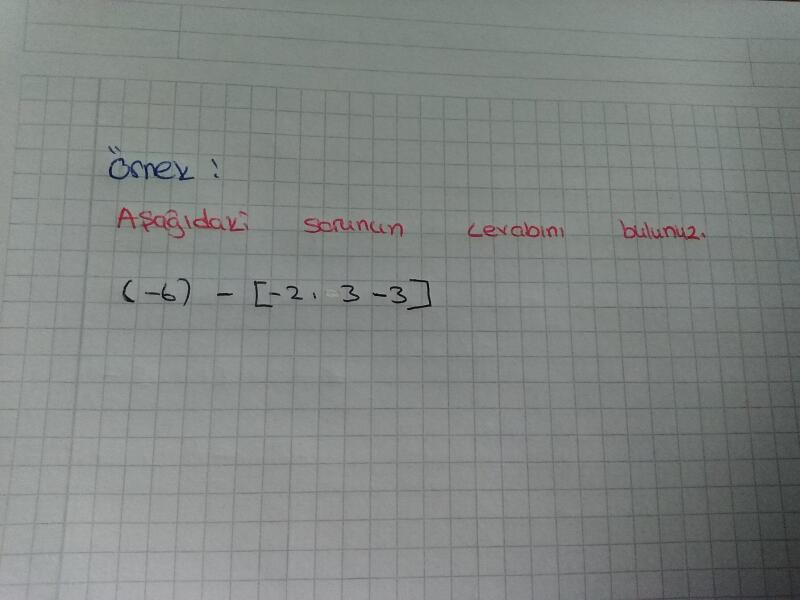 Örnek :
Aşağıdaki sorunun cevabını bulunuz.
(-6) - [-2. 3 -3]